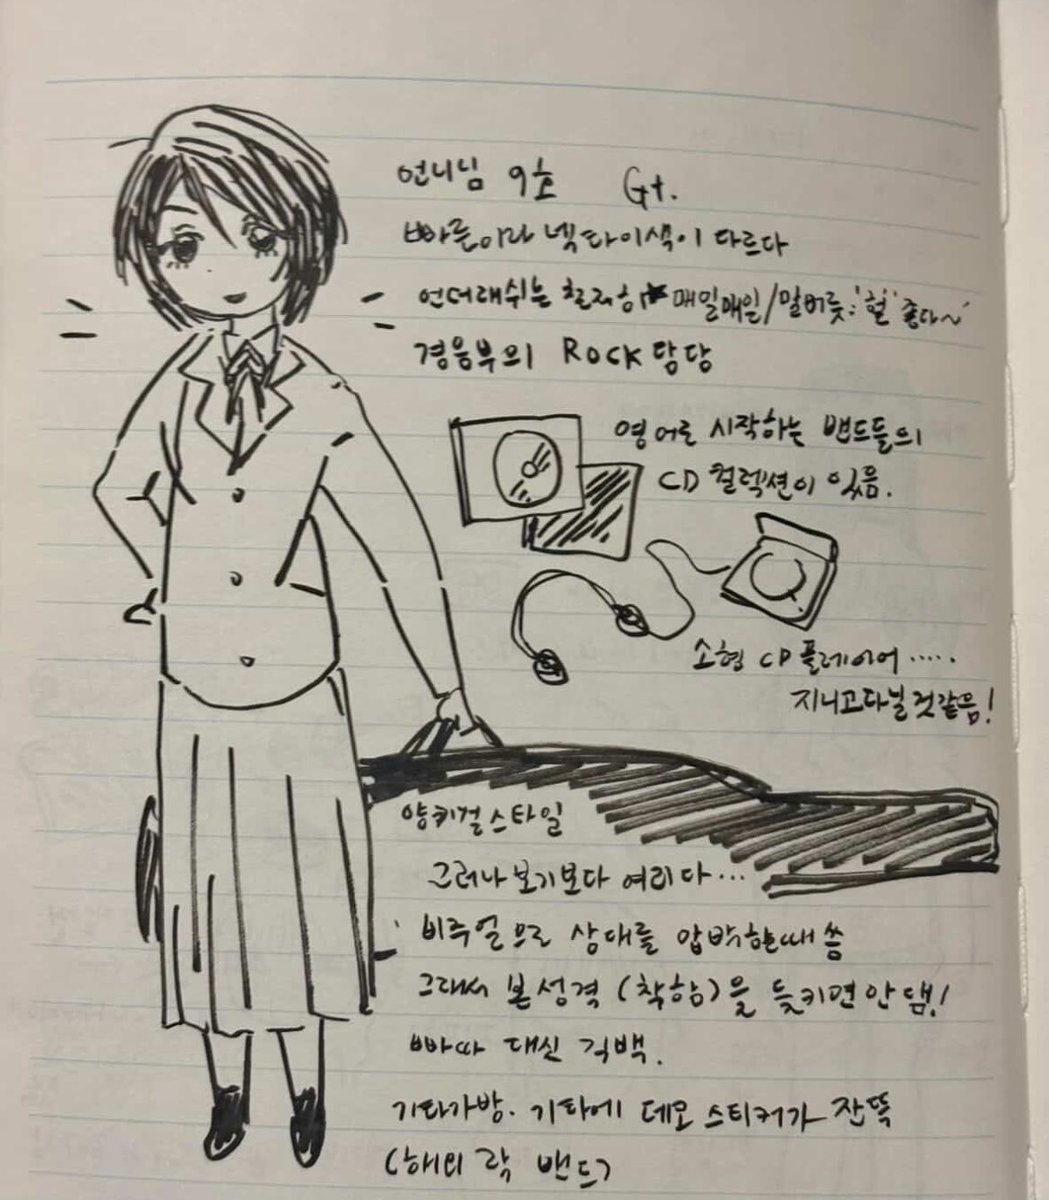 언니님 9호 Gt.
빠른이라 넥타이색이 다르다
언더래쉬는 철저히 매일매일/말버릇: '헐' 좋다~
경음부의 ROCK 담당
영어로 시작하는 밴드들의
CD 컬렉션이 있음.
소형 CD 플레이어.....
지니고다닐것같음!
양키걸스타일
그러나 보기보다 여리다...
비주얼으로 상대를 압박할때씀
그래서 본성격(착함)을 들키면 안댐!
빠따 대신 긱백.
기타가방. 기타에 데모 스티커가 잔뜩
(해외 락 밴드)